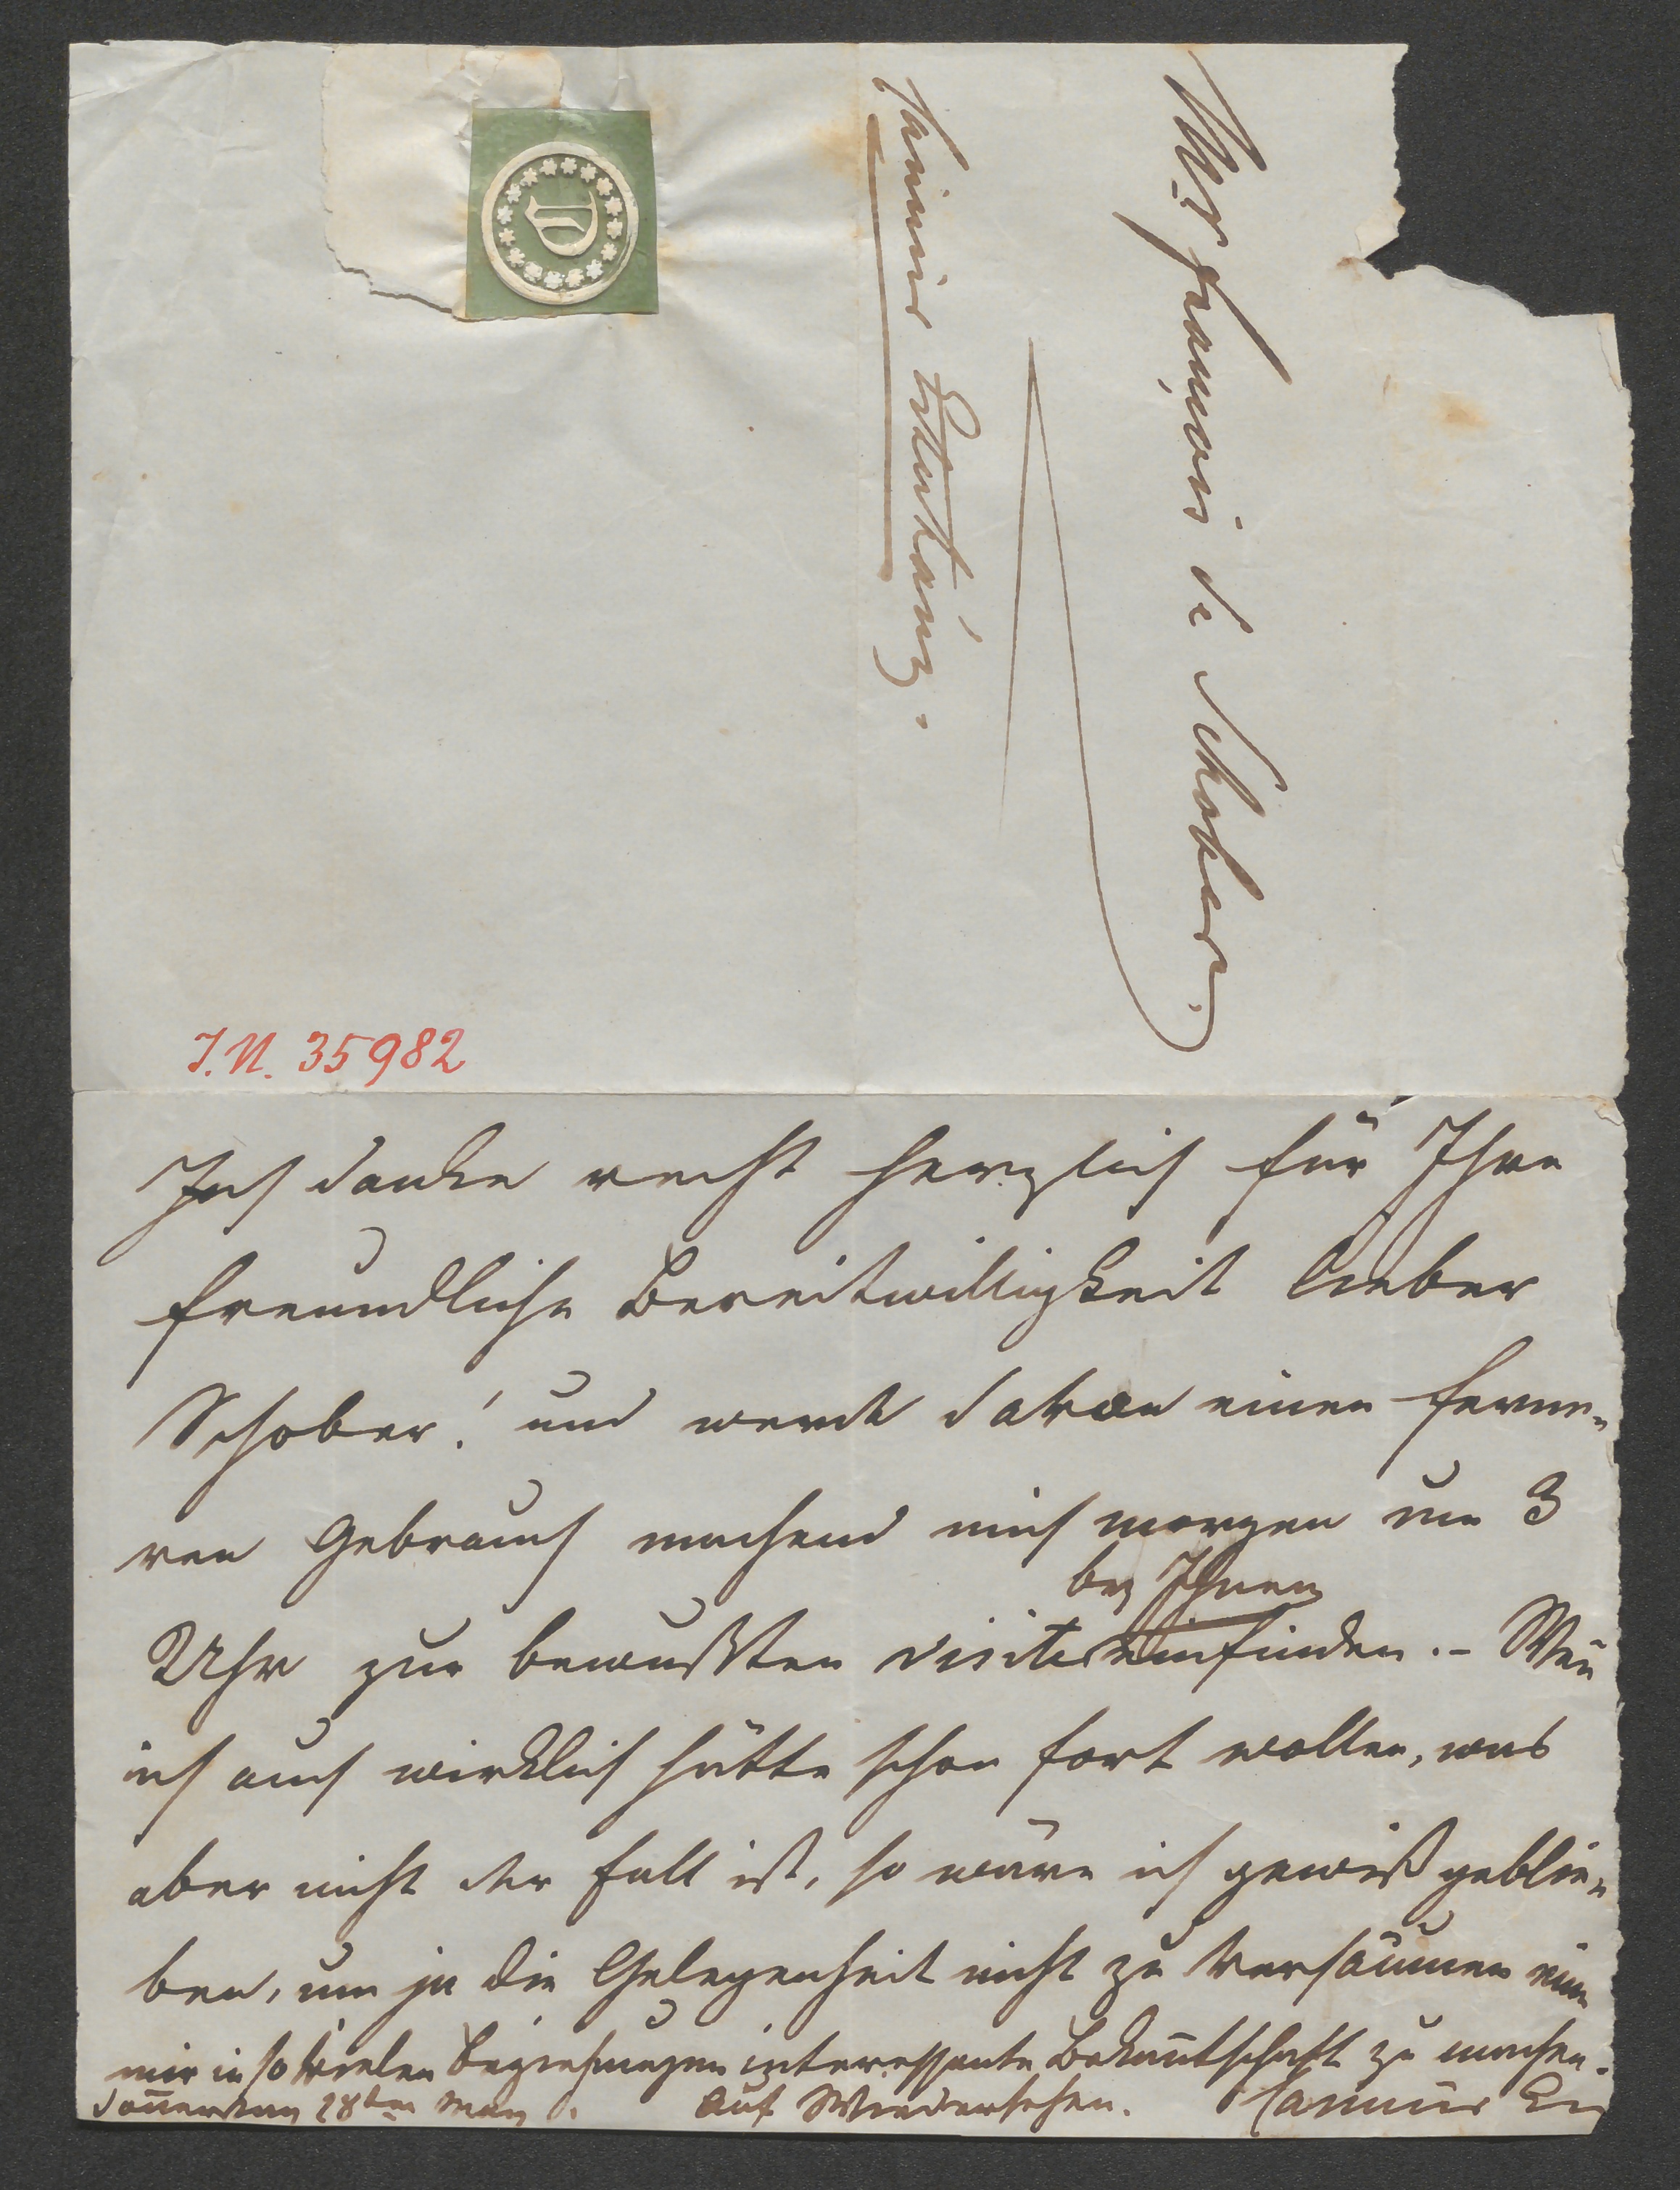 Mr françois de Schober.
J.N. 35982
Ich danke recht herzlich für Ihre
freundliche Bereitwilligkeit lieber
Schober! und werde davon einen ferne-
ren Gebrauch machend mich morgen um 3
bey Ihnen
Uhr zur bewußten visite einfinden. – Wen̄
ich auch wirklich hätte schon fort wollen, was
aber nicht der Fall ist, so wäre ich gewiß geblie-
ben, um ja die Gelegenheit nicht zu versäumen eine
mir in so vielen Beziehungen interessante Bekan̄tschaft zu machen.
Don̄erstag 28ten May. Auf Wiedersehen.